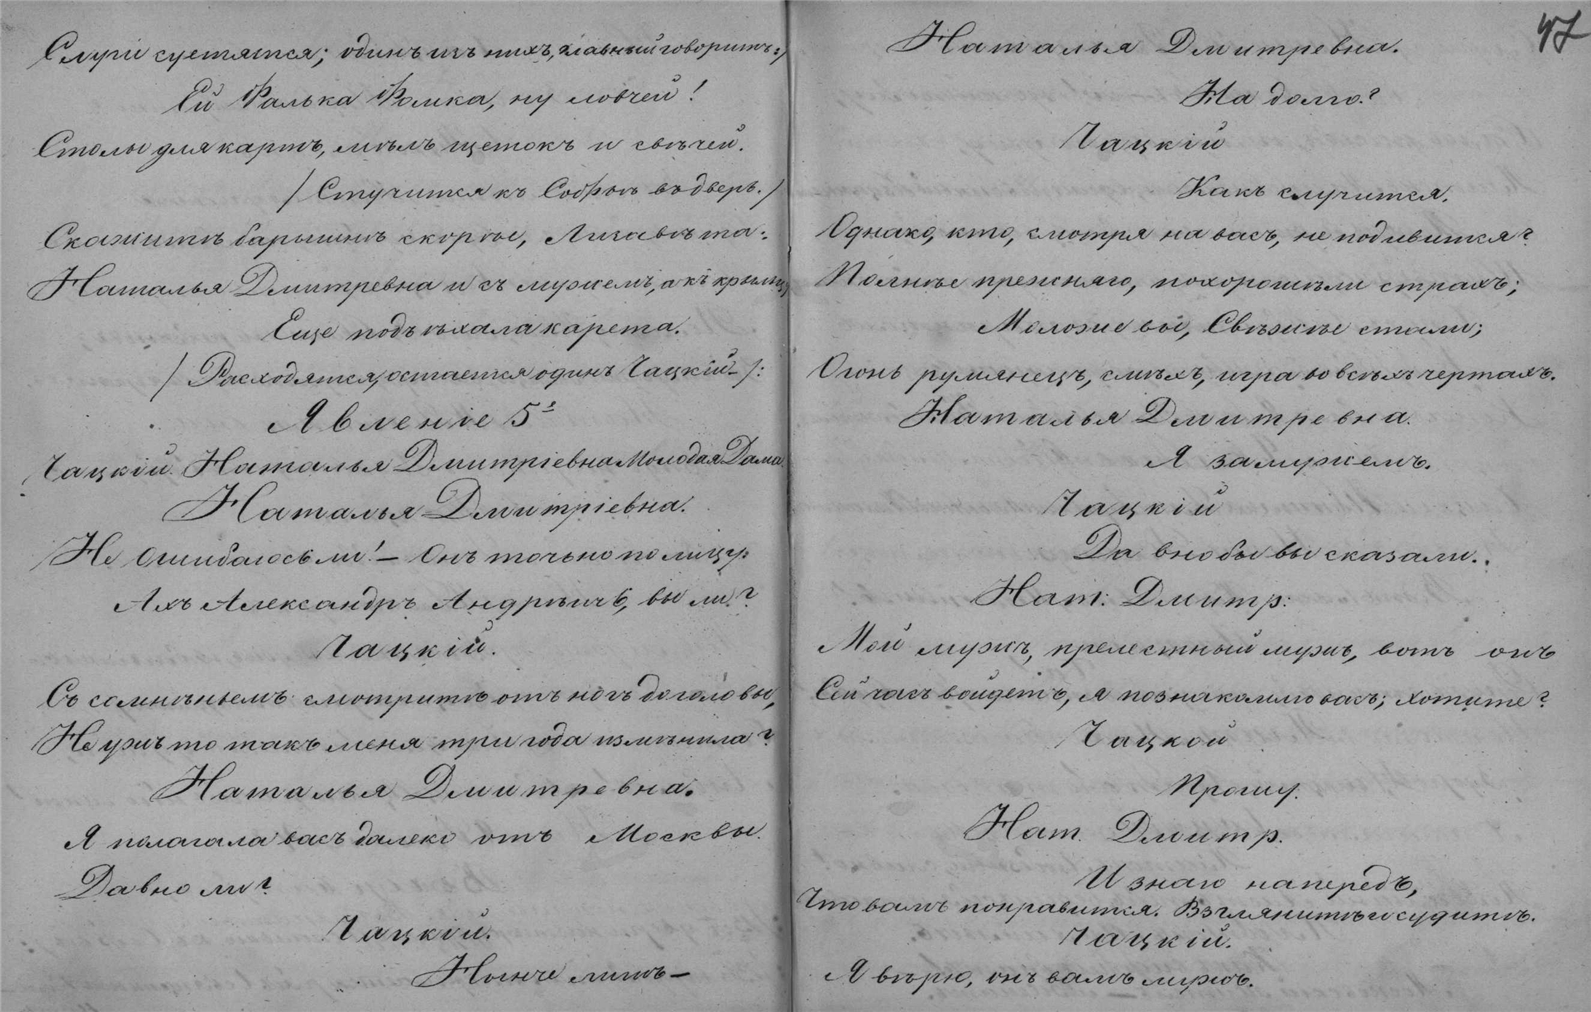 Слуги суетятся; одинъ изъ нихъ, главный говоритъ:/
Ей Фалька Фомка, ну ловчей!
Столы для картъ, мѣлъ щетокъ и свѣчей.
/Стучится къ Софьѣ въ дверь./
Скажитѣ барышнѣ скорѣе, Лизавѣта:
Наталья Дмитревна и съ мужемъ, а къ крыльцу
Еще подъѣхала карета.
/Расходятся, остается одинъ Чацкій-/:
Явленіе 5ᵉ
Чацкій. Наталья Дмитріевна Молодая Дама
Наталья Дмитріевна.
Не ошибаюсь ли!- Онъ точьно по лицу
Ахъ Александръ Андрѣичь, вы ли?
Чацкій.
Съ сомнѣньемъ смотритѣ отъ ногъ до головы,
Неужъ то такъ меня три года измѣнила?
Наталья Дмитревна.
Я полагала васъ далеко отъ Москвы.
Давно ли?
Чацкій.
Нынче лишь-
47
Наталья Дмитревна.
На долго?
Чацкій
Какъ случится.
Однако, кто, смотря на васъ, не подивится?
Полнѣе прежняго, похорошѣли страхъ;
Моложе вы, Свѣжѣе стали;
Огонь румянецъ, смѣхъ, игра во всѣхъ чертахъ.
Наталья Дмитревна.
Я замужемъ.
Чацкій
Давно бы вы сказали..
Нат: Дмитр:
Мой мужъ, прелестный мужъ, вотъ онъ
Сей часъ войдетъ, я познакомлю васъ; хотите?
Чацкой
Прошу.
Нат. Дмитр.
И знаю напередъ,
Что вамъ понравится. Взглянитѣ и судитѣ.
Чацкій.
Я вѣрю, онъ вамъ мужъ.